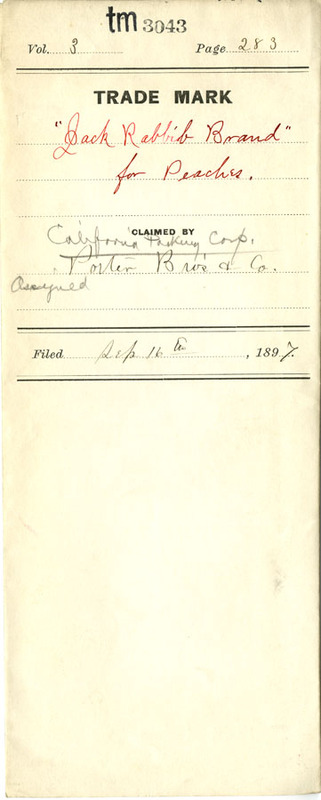 tm 3043
Vol. 3 Page 283
TRADE MARK
"Jack Rabbit Brand"
for Peaches.
CLAIMED BY
California Packing Corp.
Porter Bro's & Co.
Assigned
Filed Sep 16th, 1897.